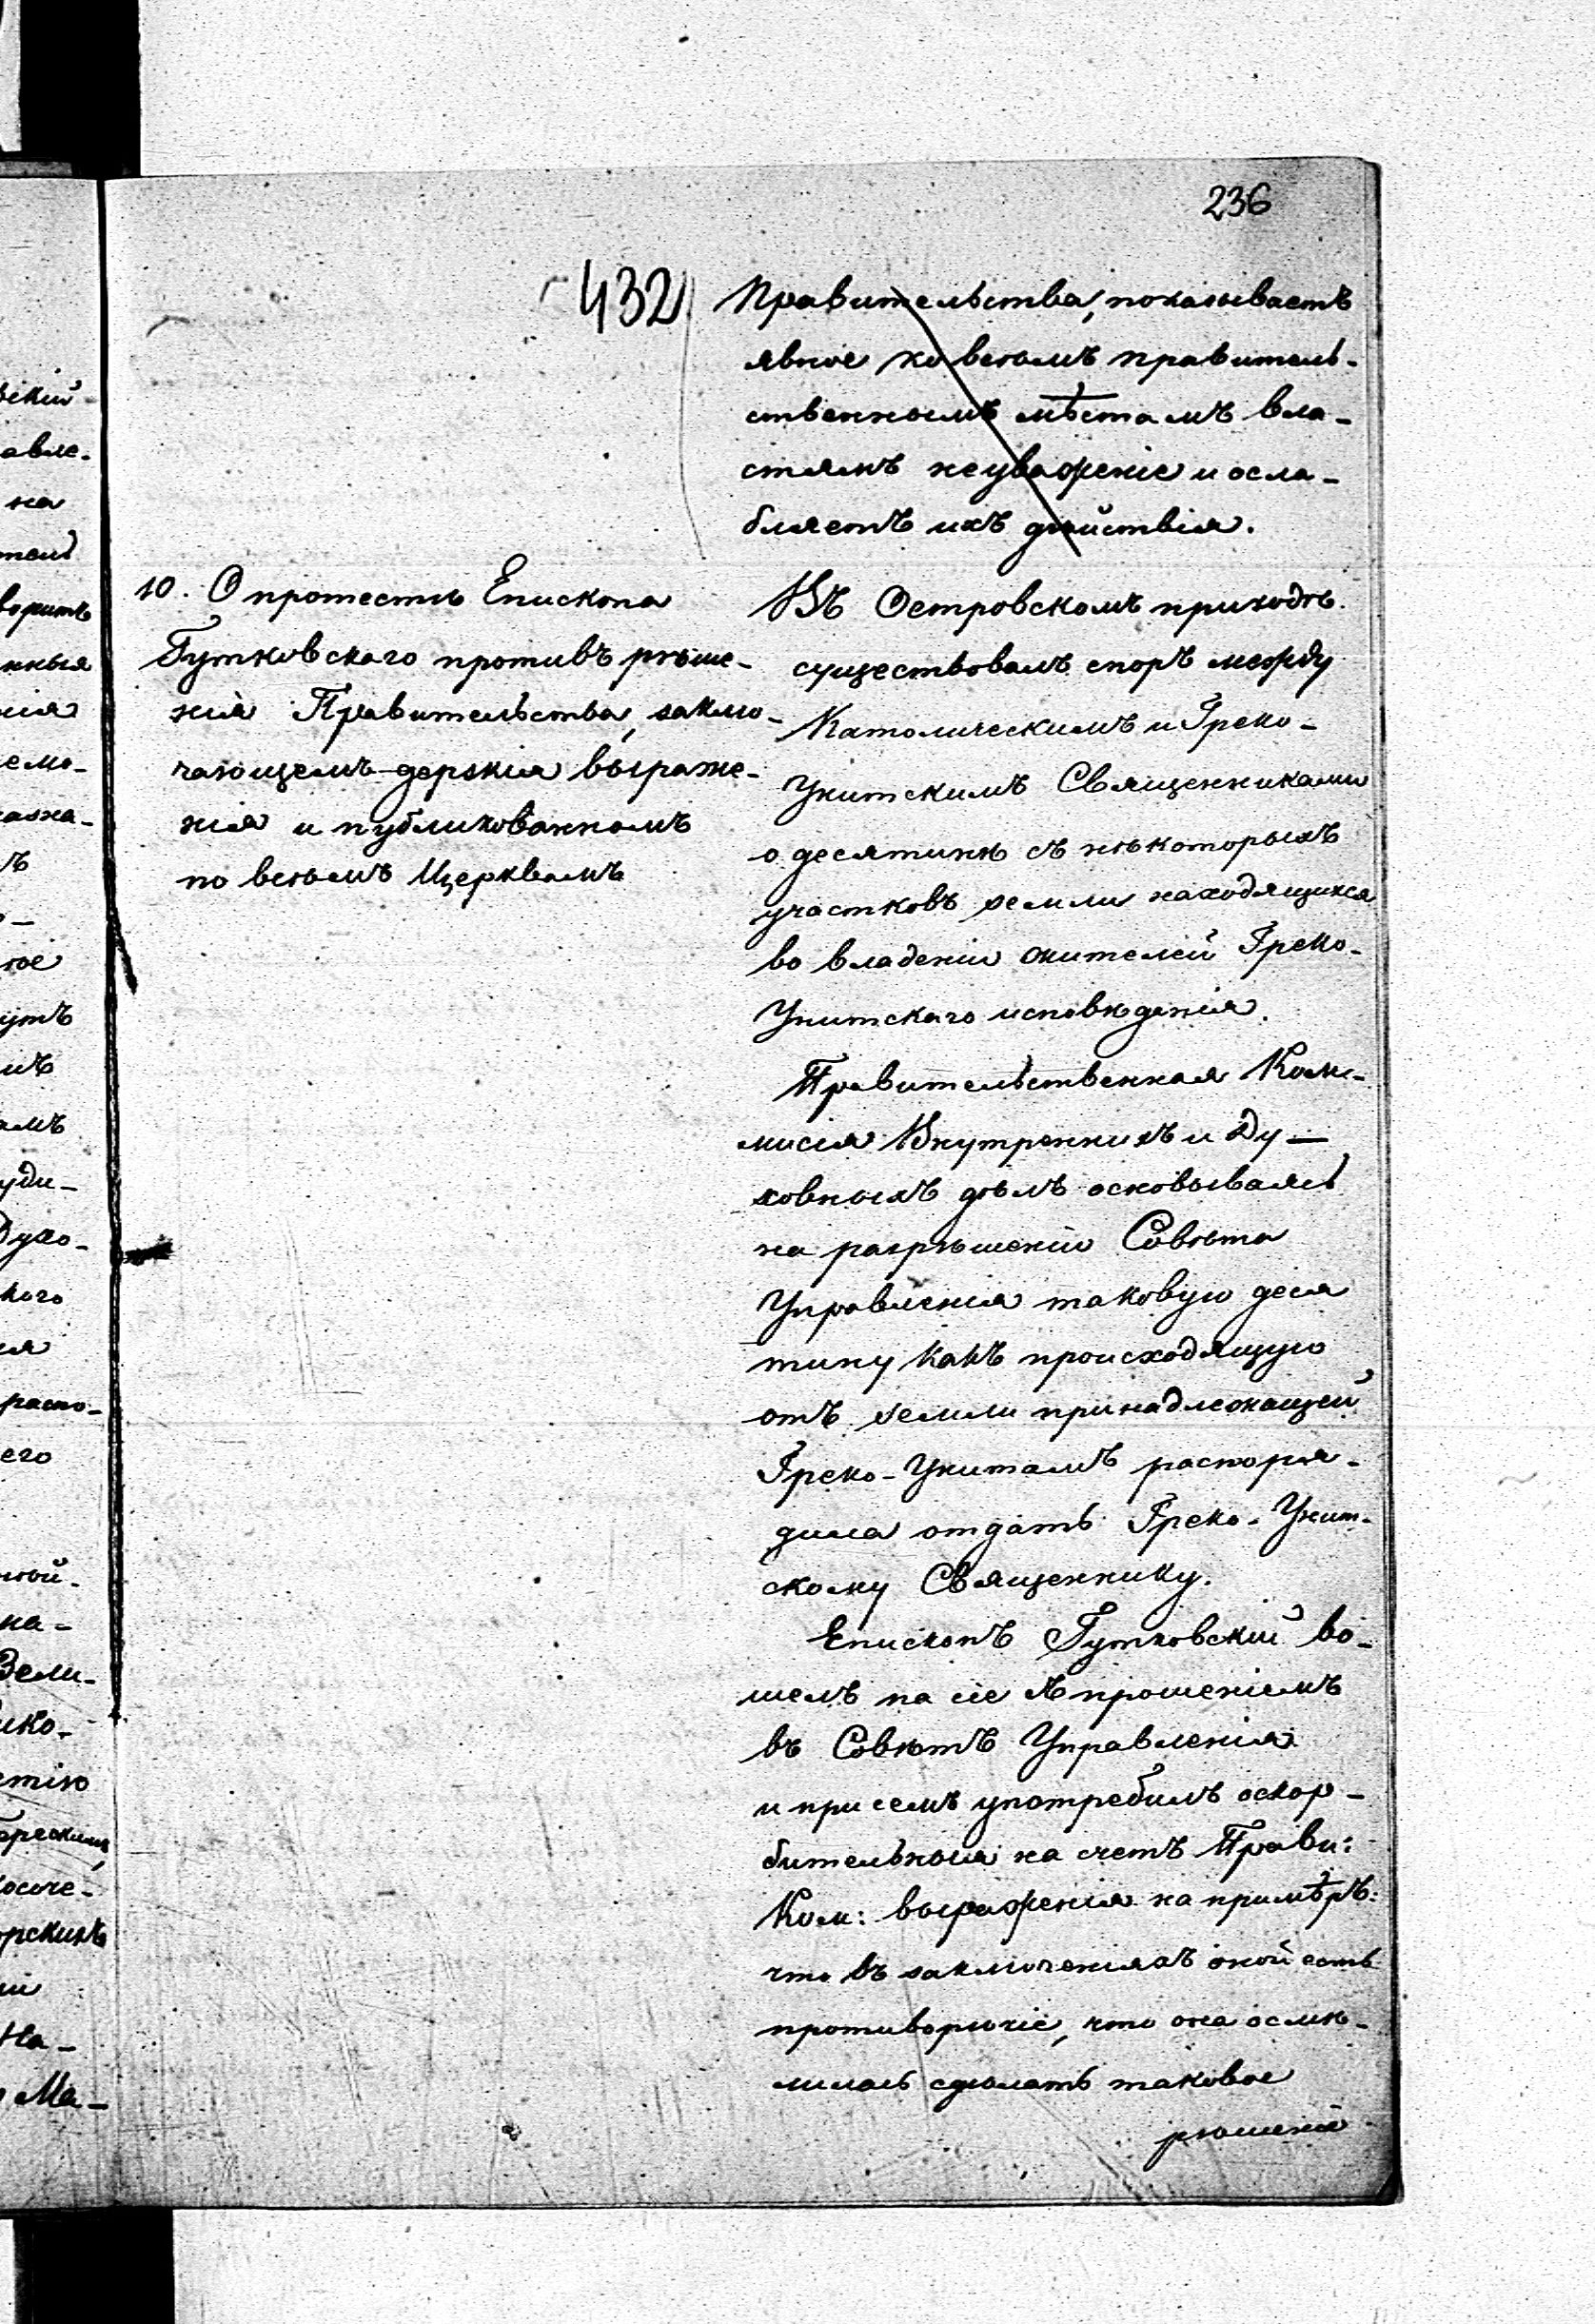 236
432
Правительства, показываетъ
явное ко всѣмъ правитель-
ственнымъ мѣстамъ вла-
стямъ неуваженіе и осла-
бляетъ ихъ дѣйствія.
10. О протестѣ Епископа
Гутковскаго противъ рѣше-
нія Правительства, заклю-
чающемъ дерзкія выраже-
нія и публикованномъ
по всѣмъ Церквамъ
Въ Островскомъ приходѣ
существовалъ споръ между
Католическимъ и Греко-
Унитскимъ Священниками
о десятинѣ съ нѣкоторыхъ
участковъ земли находящихся
во владеніи жителей Греко-
Унитскаго исповѣденія.
Правительственная Ком-
мисія Внутреннихъ и Ду-
ховныхъ дѣлъ основываясь
на разрѣшеніи Совѣта
Управленія таковую деся
тину какъ происходящую
отъ земли принадлежащей
Греко-Унитамъ распоря-
дила отдать Греко-Унит-
скому Священнику.
Епископъ Гутковскій во-
шелъ на сіе съ прошеніемъ
въ Совѣтъ Управленія
и при семъ употребилъ оскор-
бительныя на счетъ Прави:
Ком: выраженія на примѣръ:
что въ заключеніяхъ оной есть
противорѣчіе, что она осмѣ-
лилась сдѣлать таковое
рѣшеніе